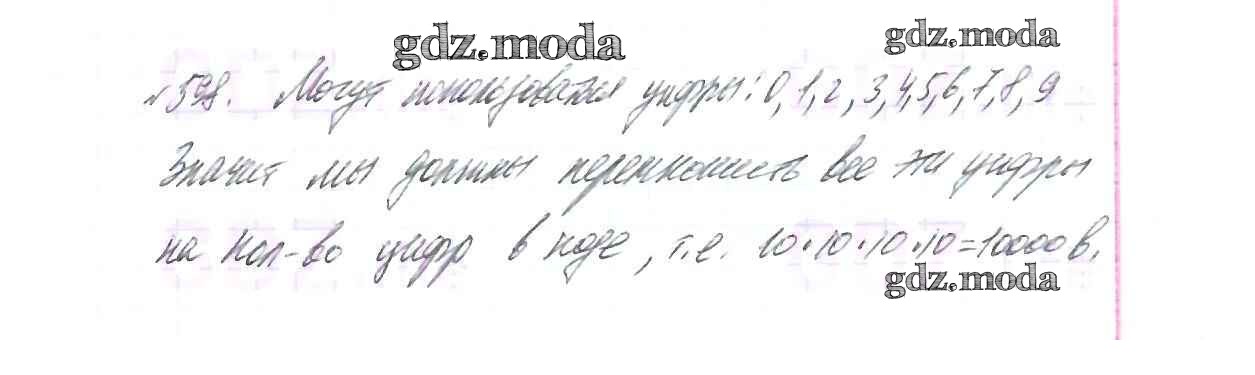 gdz.moda
gdz.moda
№598. Могут использоваться цифры: 0,1,2,3,4,5,6,7,8,9
Значит мы должны перемножить все эти цифры
на кол-во цифр в коде, т.е. 10·10·10·10=10000 в.
gdz.moda